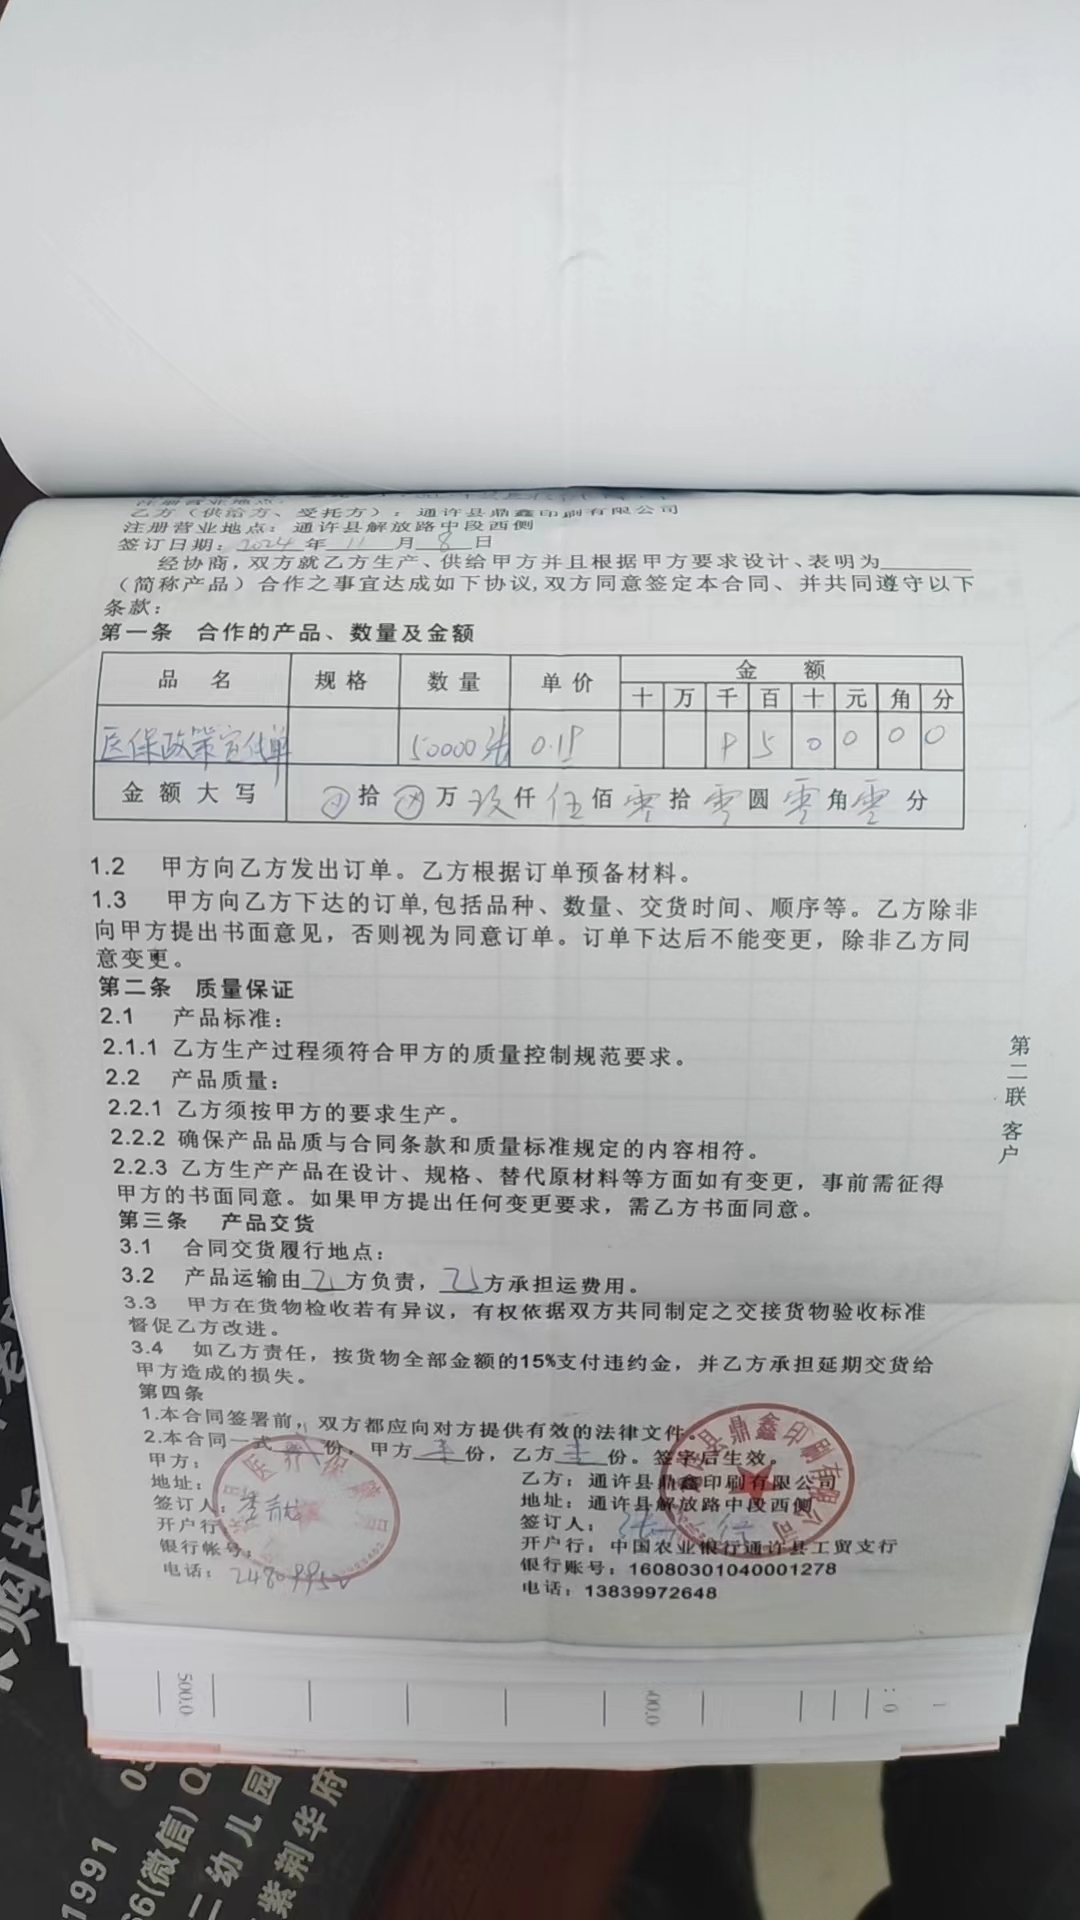 乙方（供给方、受托方）：通许县鼎鑫印刷有限公司
注册营业地点：通许县解放路中段西侧
签订日期：2024年11月8日
经协商，双方就乙方生产、供给甲方并且根据甲方要求设计、表明为
（简称产品）合作之事宜达成如下协议,双方同意签定本合同、并共同遵守以下
条款：
第一条 合作的产品、数量及金额
品名 规格 数量 单价 金额
十 万 千 百 十 元 角 分
医保政策宣传单 50000张 0.19 9 5 0 0 0 0
金额大写 拾 万 玖 仟 伍 佰 零 拾 零 圆 零 角 零 分
1.2 甲方向乙方发出订单。乙方根据订单预备材料。
1.3 甲方向乙方下达的订单,包括品种、数量、交货时间、顺序等。乙方除非
向甲方提出书面意见，否则视为同意订单。订单下达后不能变更，除非乙方同
意变更。
第二条 质量保证
2.1 产品标准：
2.1.1 乙方生产过程须符合甲方的质量控制规范要求。
2.2 产品质量：
2.2.1 乙方须按甲方的要求生产。
2.2.2 确保产品品质与合同条款和质量标准规定的内容相符。
2.2.3 乙方生产产品在设计、规格、替代原材料等方面如有变更，事前需征得
甲方的书面同意。如果甲方提出任何变更要求，需乙方书面同意。
第三条 产品交货
3.1 合同交货履行地点：
3.2 产品运输由乙方负责，乙方承担运费用。
3.3 甲方在货物检收若有异议，有权依据双方共同制定之交接货物验收标准
督促乙方改进。
3.4 如乙方责任，按货物全部金额的15%支付违约金，并乙方承担延期交货给
甲方造成的损失。
第四条
1.本合同签署前，双方都应向对方提供有效的法律文件。
2.本合同一式 份，甲方 份，乙方 份。签字后生效。
甲方：
地址：
签订人：
开户行
银行帐号：
电话：
医疗保障局
乙方：通许县鼎鑫印刷有限公司
地址：通许县解放路中段西侧
签订人：
开户行：中国农业银行通许县工贸支行
银行账号：16080301040001278
电话：13839972648
县鼎鑫印刷有限公司
第二联 客户
500.0
400.0
1991
66(微信)
二幼儿园
紫荆华府